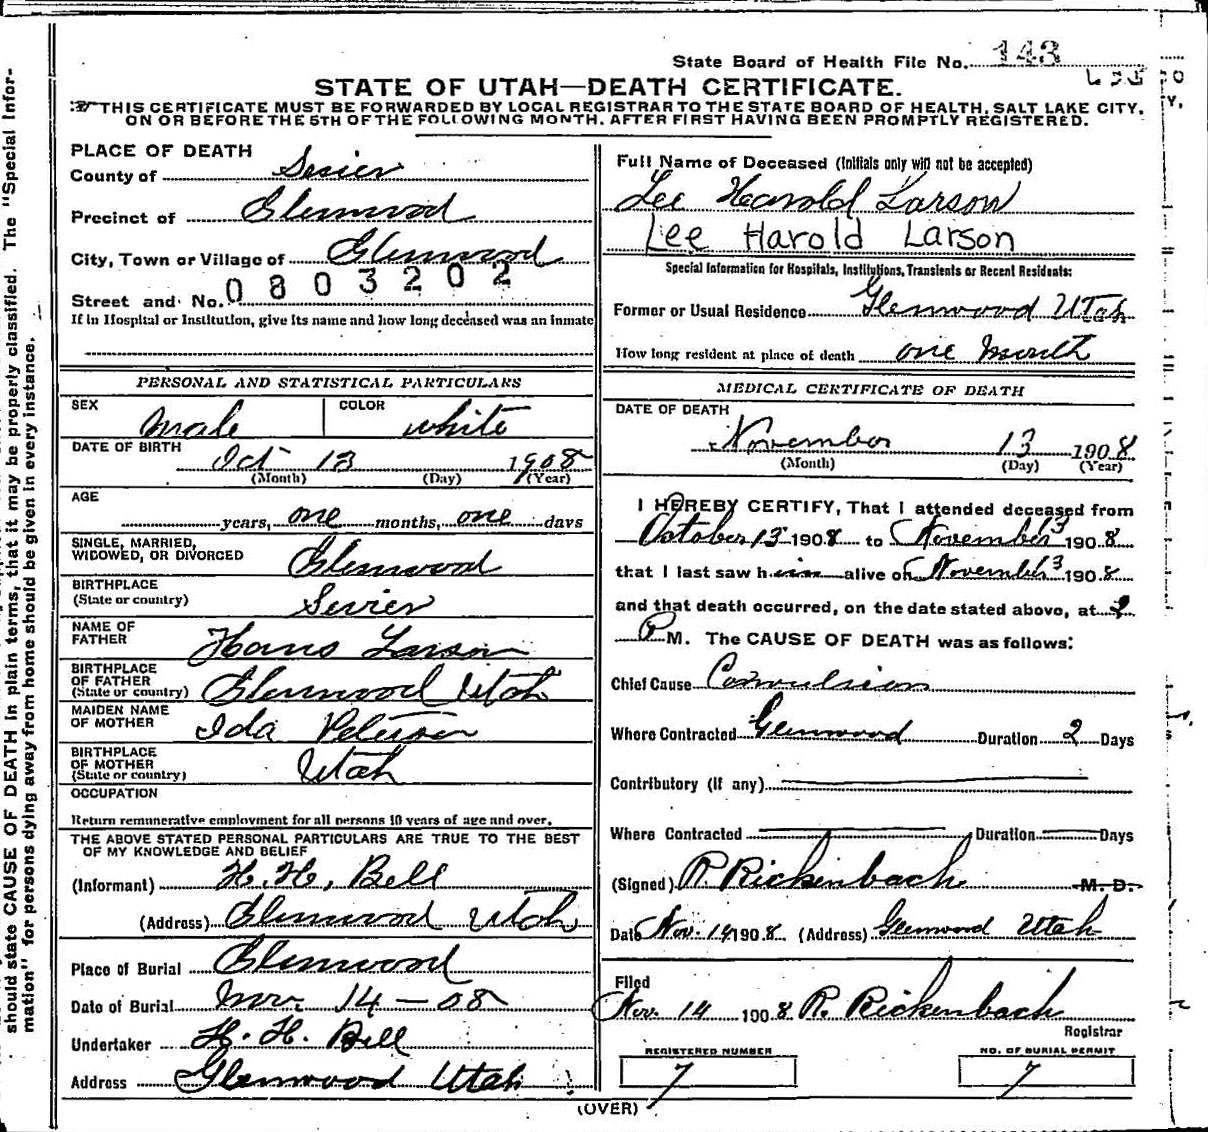 State Board of Health File No. 143
STATE OF UTAH—DEATH CERTIFICATE.
THIS CERTIFICATE MUST BE FORWARDED BY LOCAL REGISTRAR TO THE STATE BOARD OF HEALTH, SALT LAKE CITY,
ON OR BEFORE THE 5TH OF THE FOLLOWING MONTH. AFTER FIRST HAVING BEEN PROMPTLY REGISTERED.
should state CAUSE OF DEATH in plain terms, that it may be properly classified. The "Special Infor-
mation" for persons dying away from home should be given in every instance.
PLACE OF DEATH
County of Sevier
Precinct of Glenwood
City, Town or Village of Glenwood
Street and No. 0803202
If in Hospital or Institution, give its name and how long deceased was an inmate
PERSONAL AND STATISTICAL PARTICULARS
SEX Male COLOR white
DATE OF BIRTH Oct 13 1908
(Month) (Day) (Year)
AGE
years, one months, one days
SINGLE, MARRIED,
WIDOWED, OR DIVORCED Glenwood
BIRTHPLACE
(State or country) Sevier
NAME OF
FATHER Hans Larson
BIRTHPLACE
OF FATHER
(State or country) Glenwood Utah
MAIDEN NAME
OF MOTHER Ida Peterson
BIRTHPLACE
OF MOTHER
(State or country) Utah
OCCUPATION
Return remunerative employment for all persons 10 years of age and over.
THE ABOVE STATED PERSONAL PARTICULARS ARE TRUE TO THE BEST
OF MY KNOWLEDGE AND BELIEF
(Informant) H. H. Bell
(Address) Glenwood Utah
Place of Burial Glenwood
Date of Burial Nov. 14 - 08
Undertaker H. H. Bell
Address Glenwood Utah
Full Name of Deceased (Initials only will not be accepted)
Lee Harold Larson
Lee Harold Larson
Special Information for Hospitals, Institutions, Transients or Recent Residents:
Former or Usual Residence Glenwood Utah
How long resident at place of death one month
MEDICAL CERTIFICATE OF DEATH
DATE OF DEATH
November 13 1908
(Month) (Day) (Year)
I HEREBY CERTIFY, That I attended deceased from
October 13 1908 to November 3 1908
that I last saw him alive on November 3 1908
and that death occurred, on the date stated above, at 2
P M. The CAUSE OF DEATH was as follows:
Chief Cause Convulsion
Where Contracted Glenwood Duration 2 Days
Contributory (If any)
Where Contracted Duration Days
(Signed) R. Rickenbach M. D.
Date Nov. 14 1908 (Address) Glenwood Utah
Filed
Nov. 14 1908 R. Rickenbach
Registrar
REGISTERED NUMBER
7
NO. OF BURIAL PERMIT
7
(OVER)